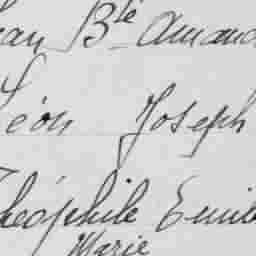 Jean Bte Amand
Léon Joseph
Théophile Emile
Marie